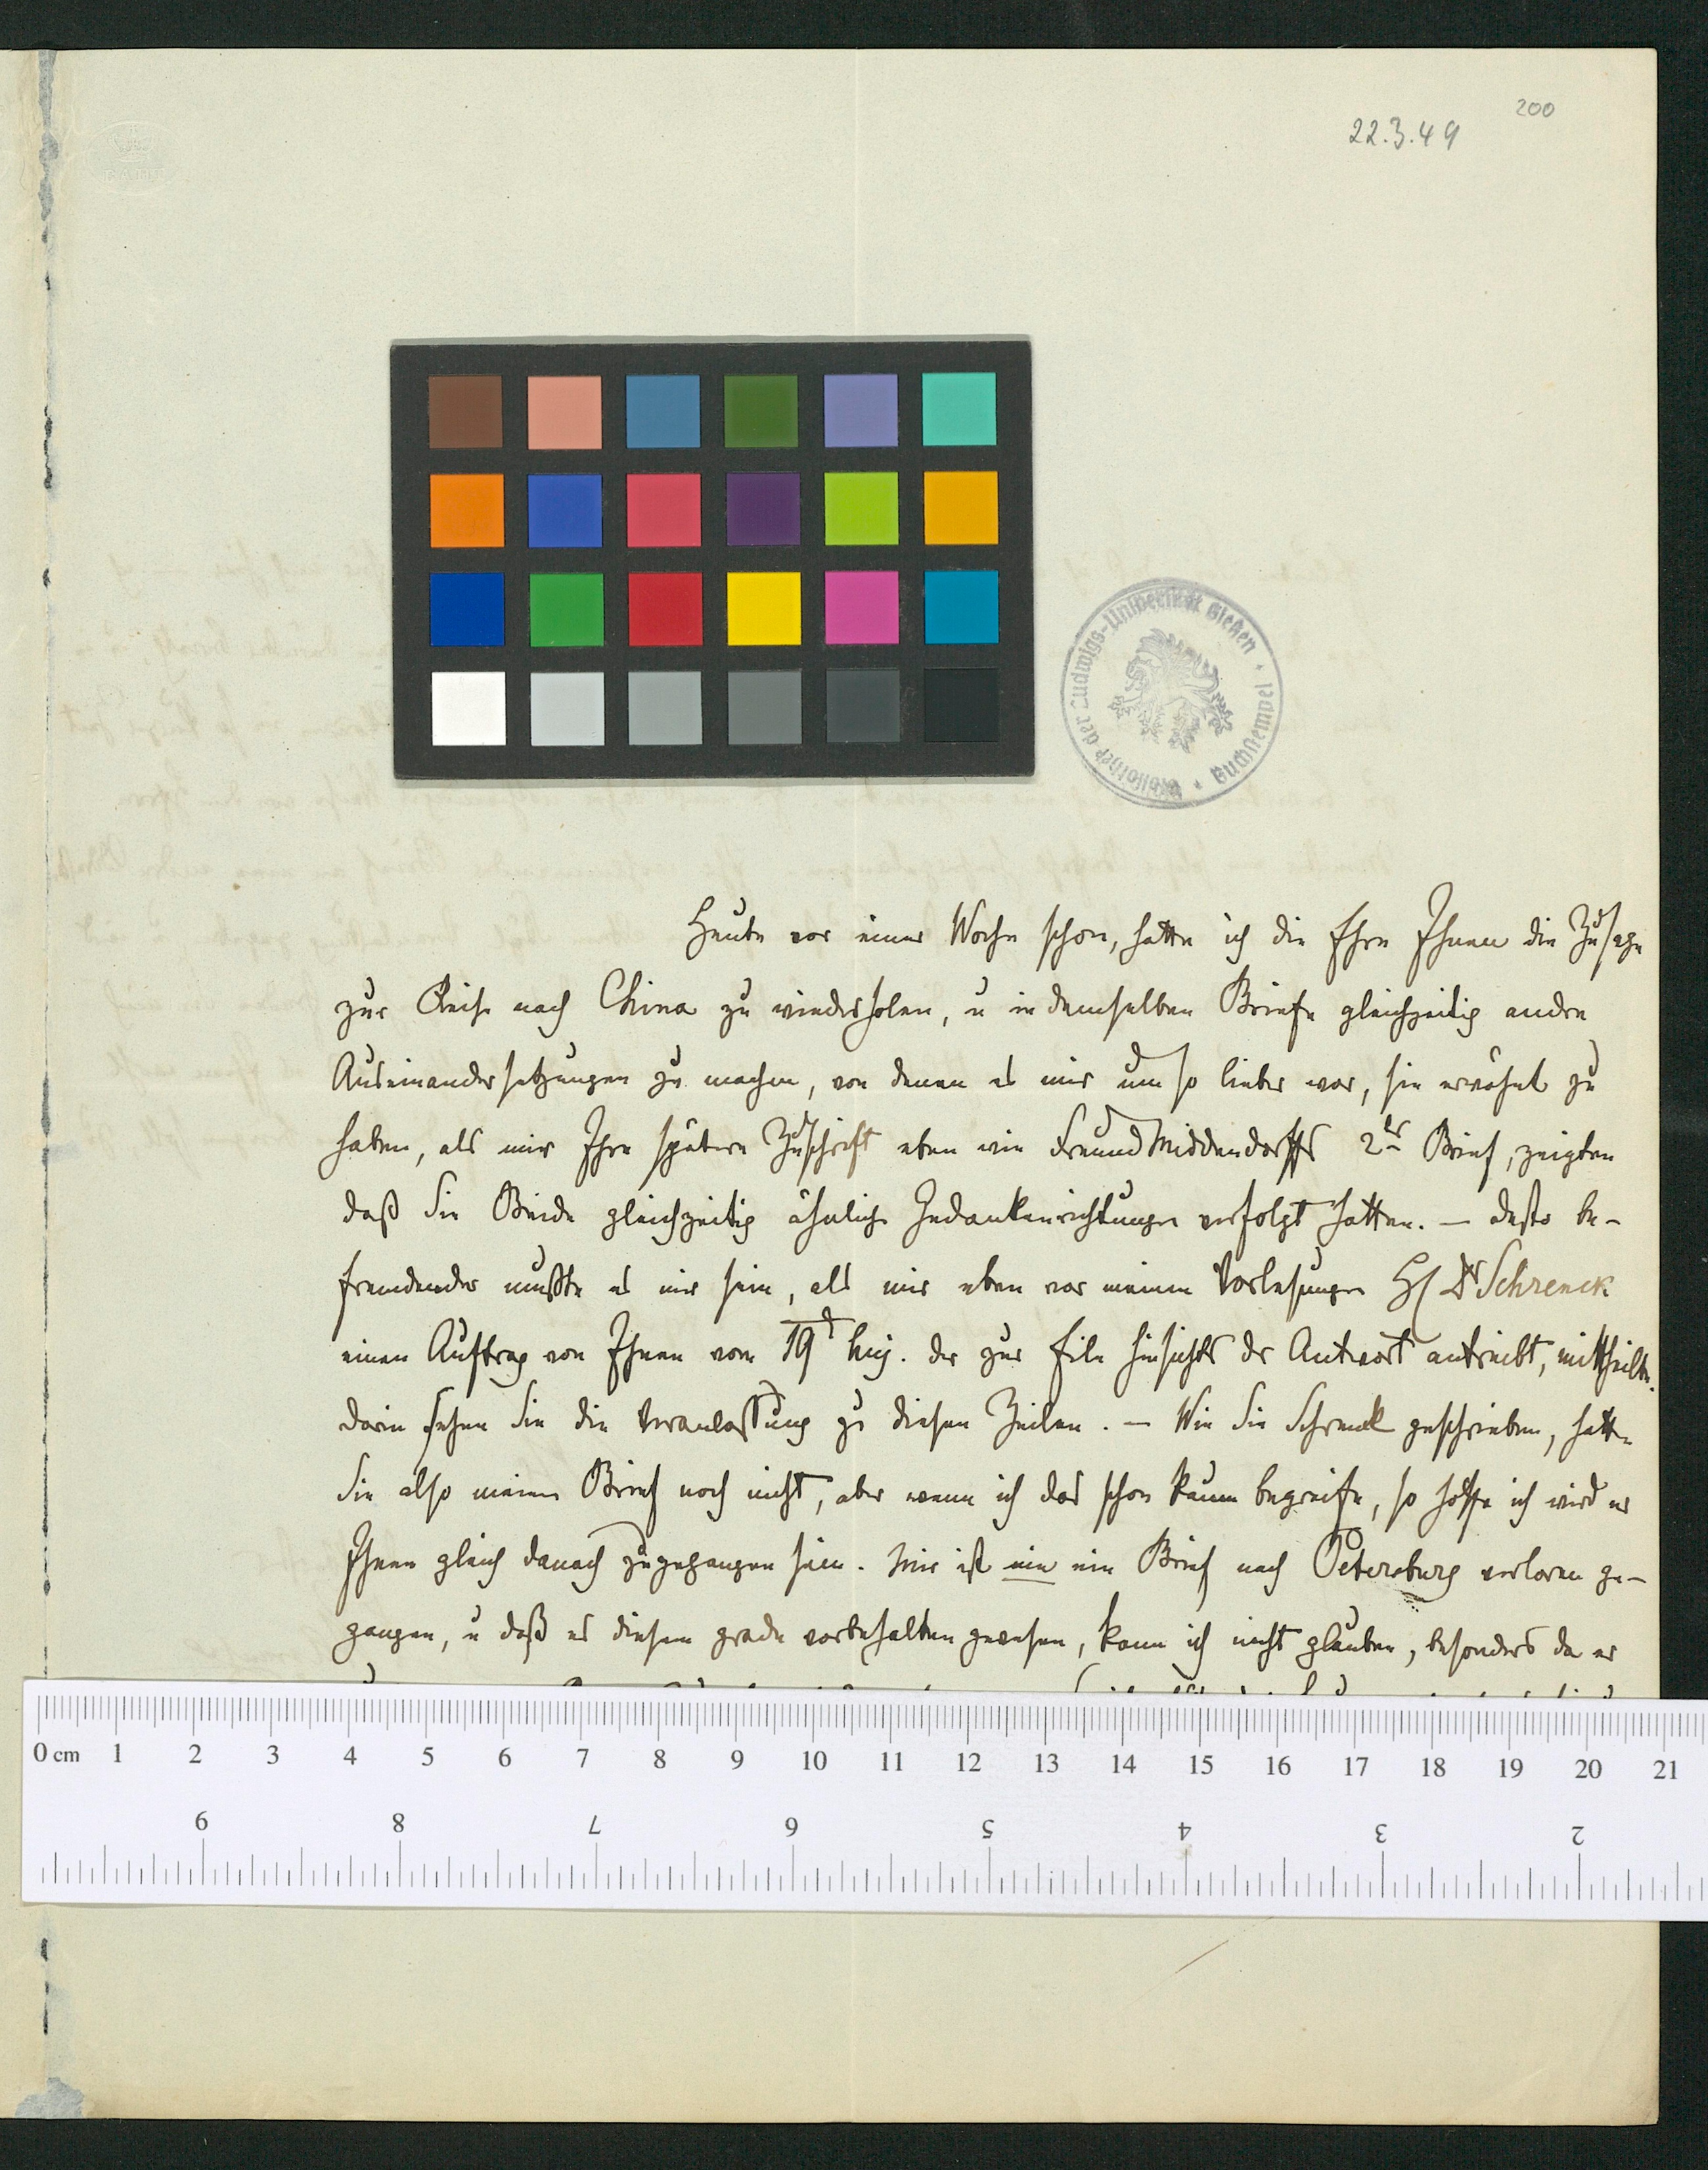 200
22.3.49
Bibliothek der Ludwigs-Universität Gießen · Buchstempel ·
Heute vor einer Woche schon, hatte ich die Ehre Ihnen die Zusage
zur Reise nach China zu wiederholen, u in demselben Briefe gleichzeitig andre
Auseinandersetzungen zu machen, von denen es mir um so lieber war, sie erwähnt zu
haben, als mir Ihre spätere Zuschrift eben wie Freund Middendorffs 2ter Brief, zeigten
daß Sie Beide gleichzeitig ähnliche Gedankenrichtungen verfolgt hatten. — desto be-
fremdender mußte es mir sein, als mir eben vor meinen Vorlesungen H Dr Schrenck
einen Auftrag von Ihnen vom 19t huj. der zur Eile hinsichts der Antwort antreibt, mittheilte.
darin sehen Sie die Veranlassung zu diesen Zeilen. — Wie Sie Schrenck geschrieben, hatten
Sie also meinen Brief noch nicht, aber wenn ich das schon kaum begreife, so hoffe ich wird er
Ihnen gleich danach zugegangen sein. Mir ist nie ein Brief nach Petersburg verloren ge-
gangen, u daß es diesem grade vorbehalten gewesen, kann ich nicht glauben, besonders da er
0 cm 1 2 3 4 5 6 7 8 9 10 11 12 13 14 15 16 17 18 19 20 21
9 8 7 6 5 4 3 2